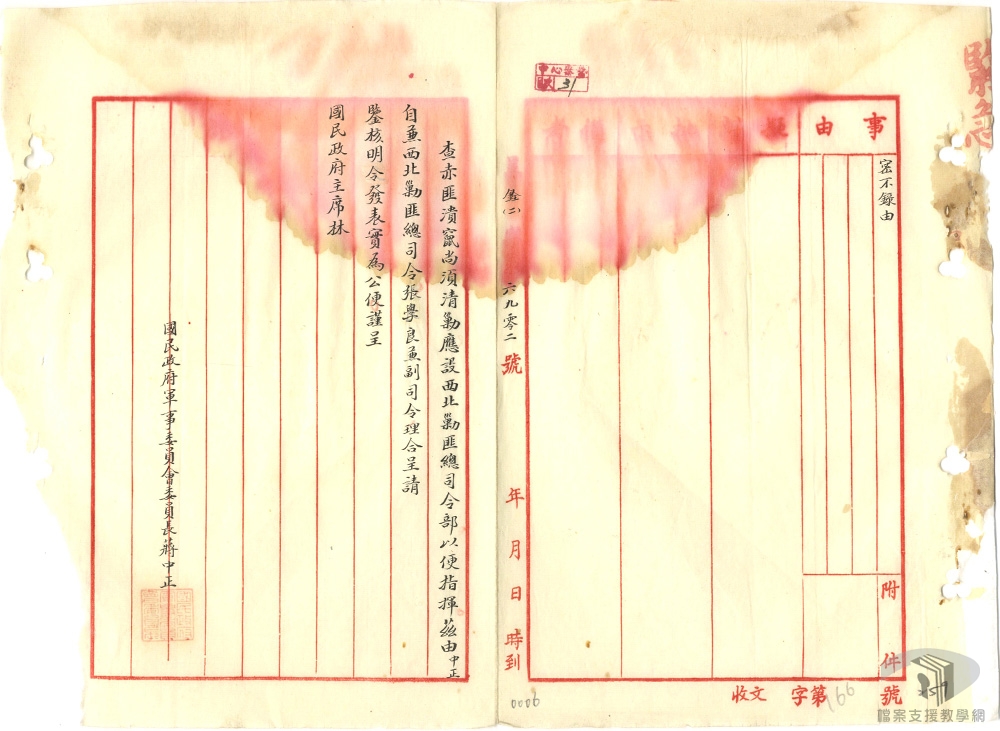 緊急
事由
密不錄由
附件
號
收文 字第 號
166
259
31
銓(二) 六九零二 號 年 月 日 時到
查赤匪潰竄尚須清勦應設西北勦匪總司令部以便指揮茲由中正
自兼西北勦匪總司令張學良兼副司令理合呈請
鑒核明令發表實為公便謹呈
國民政府主席林
國民政府軍事委員會委員長蔣中正
0006
檔案支援教學網